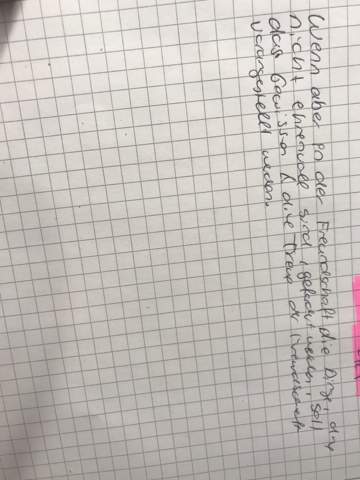 Wenn aber in der Freundschaft die Dinge, die
nicht ehrenvoll sind, gefordert werden, soll
das Gewissen & die Treue der Freundschaft
vorangestellt werden.